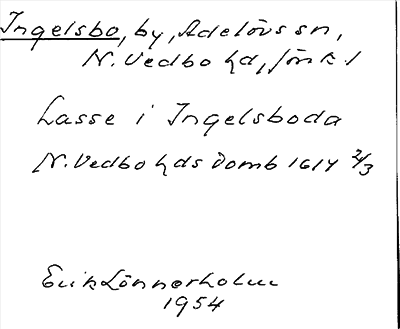 Ingelsbo, by, Adelövs sn,
N. Vedbo hd, Jönk l
Lasse i Ingelsboda
N. Vedbo hds Domb 1614 2/3
Erik Lönnerholm
1954